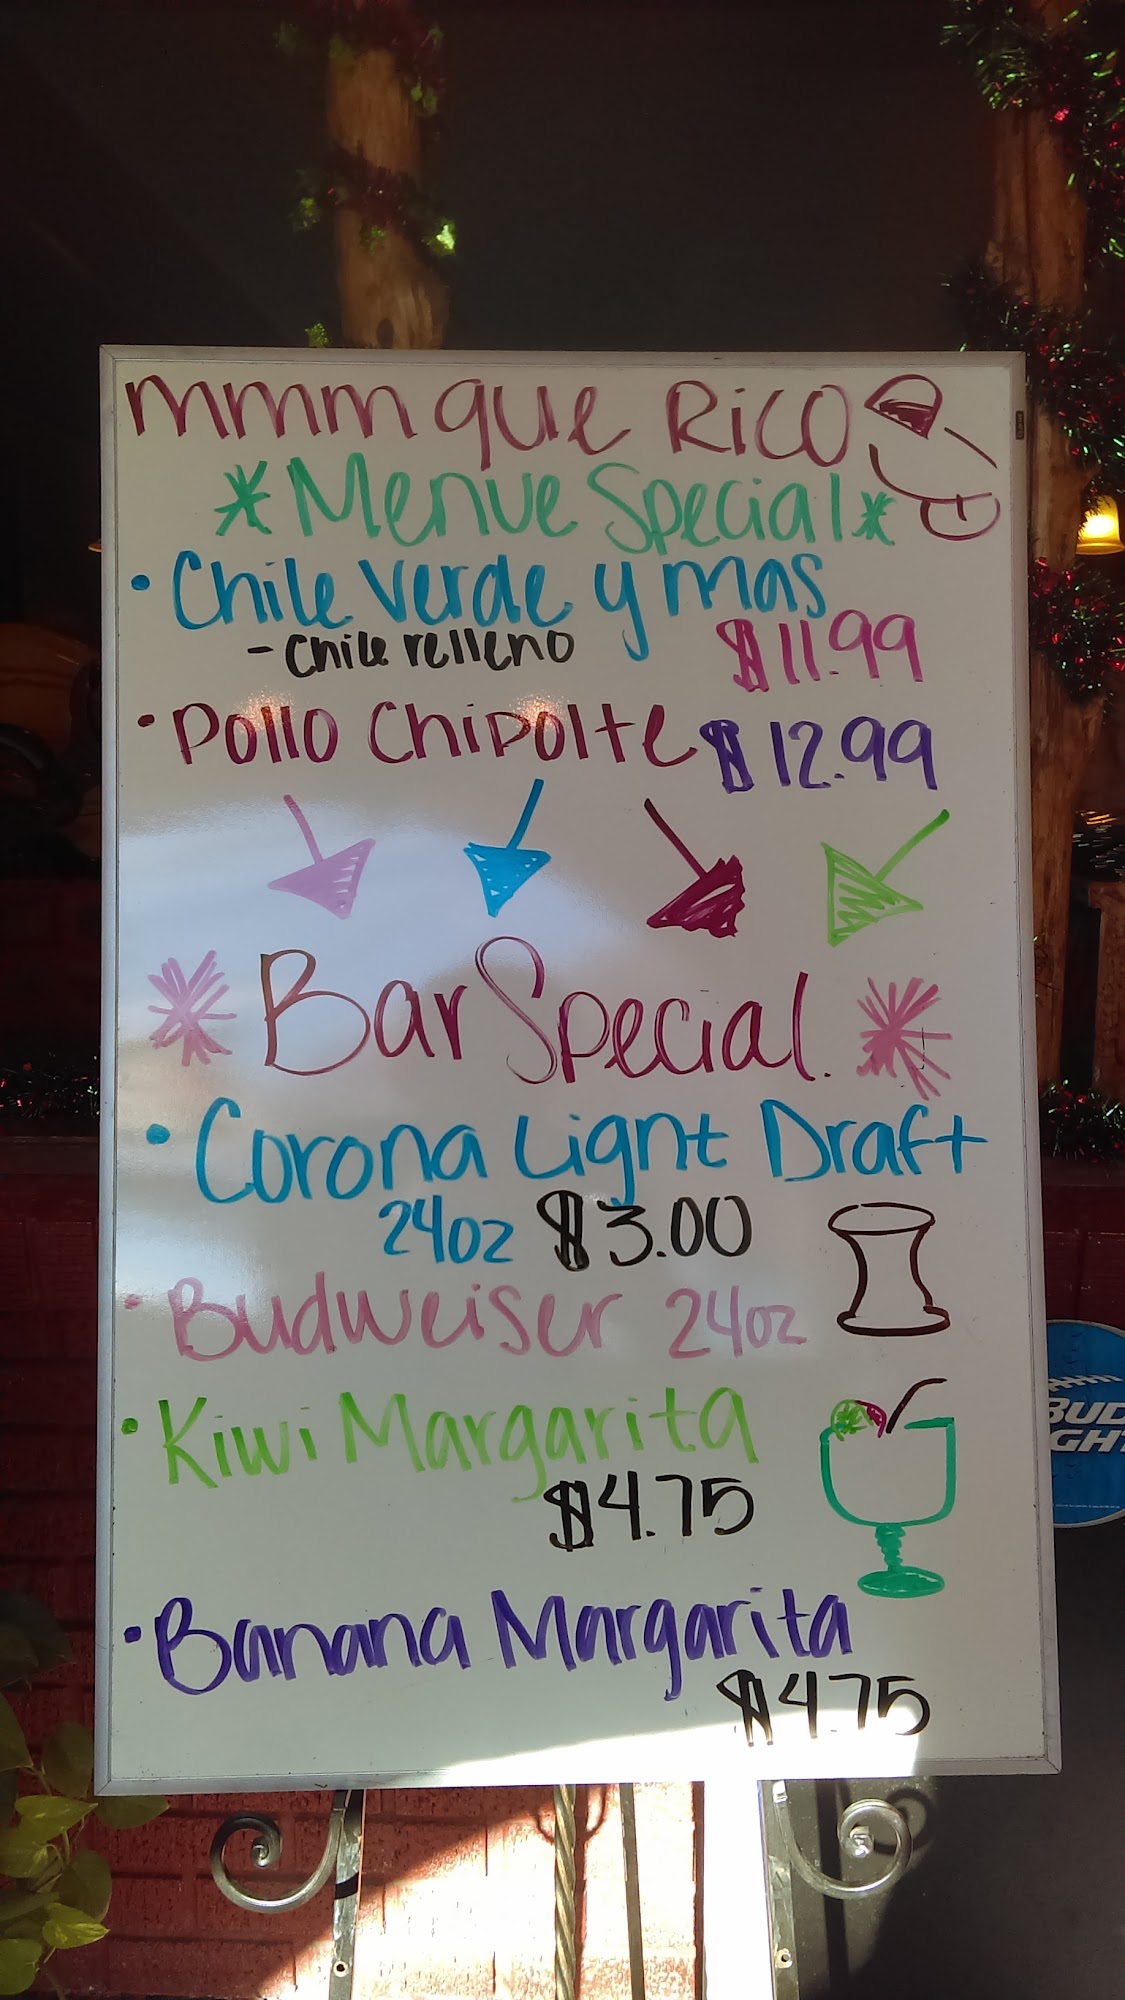 mmm que Rico
*Menue Special*
• Chile verde y mas
- Chile relleno $11.99
• Pollo Chipolte $12.99
* Bar Special. *
• Corona Light Draft
24oz $3.00
• Budweiser 24oz
• Kiwi Margarita
$4.75
• Banana Margarita
$4.75
BUD